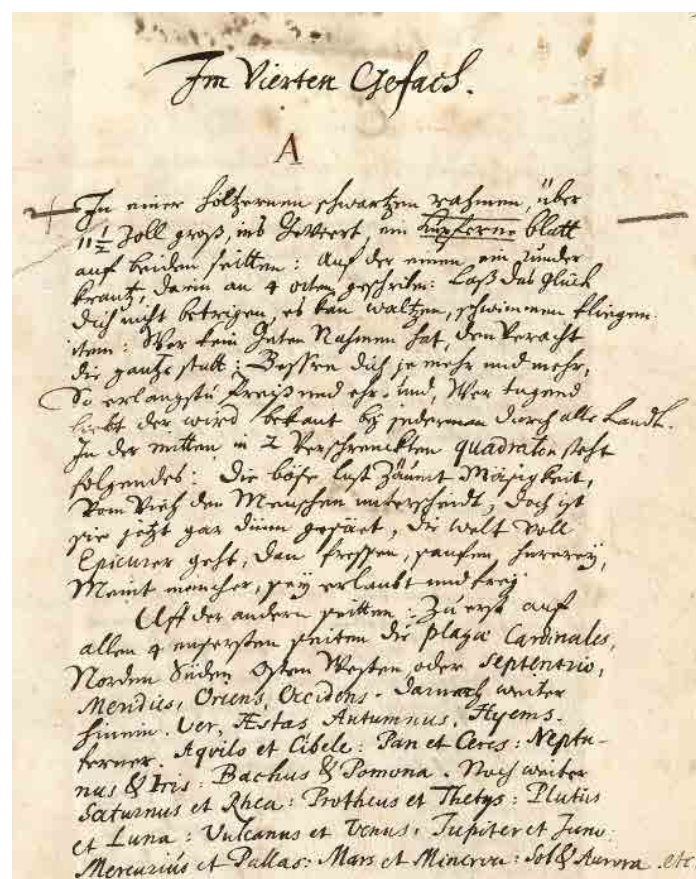 Im Vierten Gefach.
A
In einer höltzernen schwartzen rahmen, über
11 1/2 Zoll groß, ins Geviert, ein kupferne blatt
auf beiden seitten: Auf der einen, ein runder
krantz, darin an 4 orten geschriben: Laß das glück
dich nicht betrigen, es kan waltzen, schwimmen fliegen.
item: Wer kein guten Nahmen hat, den veracht
die gantze statt: Bessre dich je mehr und mehr,
So erlangstu preiß und ehr. und, Wer tugend
liebt der wird bekant bej jederman durch alle Landt.
In der mitten in 2 verschrenckten quadraten steht
folgendes: Die böse lust zäumt Mäsigkeit,
Vom Vieh den Menschen unterscheidt, doch ist
sie jetzt gar dünn gesäet, die welt voll
Epicurer geht, dan fressen, saufen, hurerey,
Meint mancher, sey erlaubt und frey.
Uff der andern seitten: Zu erst auf
allen 4 eusersten seiten die plagæ Cardinales,
Norden Süden Osten Westen oder Septentrio,
Meridies, Oriens, Occidens. darnach weiter
hinein. Ver, Æstas Autumnus, Hyems.
ferner. Aquilo et Cibele: Pan et Ceres: Neptu-
nus & Iris: Bachus & Pomona. Noch weiter
Saturnus et Rhea: Protheus et Thetys: Plutus
et Luna: Vulcanus et Venus: Jupiter et Juno
Mercurius et Pallas: Mars et Minerva: Sol & Aurora etc